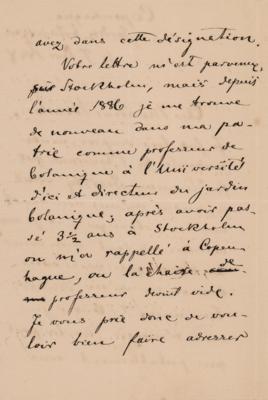 avez dans cette désignation.
Votre lettre m'est parvenue
Stockholm, mais depuis
l'année 1886 je me trouve
de nouveau dans ma pa-
trie comme professeur de
botanique à l'Université
d'ici et directeur du jardin
botanique; après avoir pas-
sé 3½ ans à Stockholm
on m'a rappellé à Copen-
hague, ou la chaise de
professeur devint vide.
Je vous prie donc de vou-
loir bien faire adresser